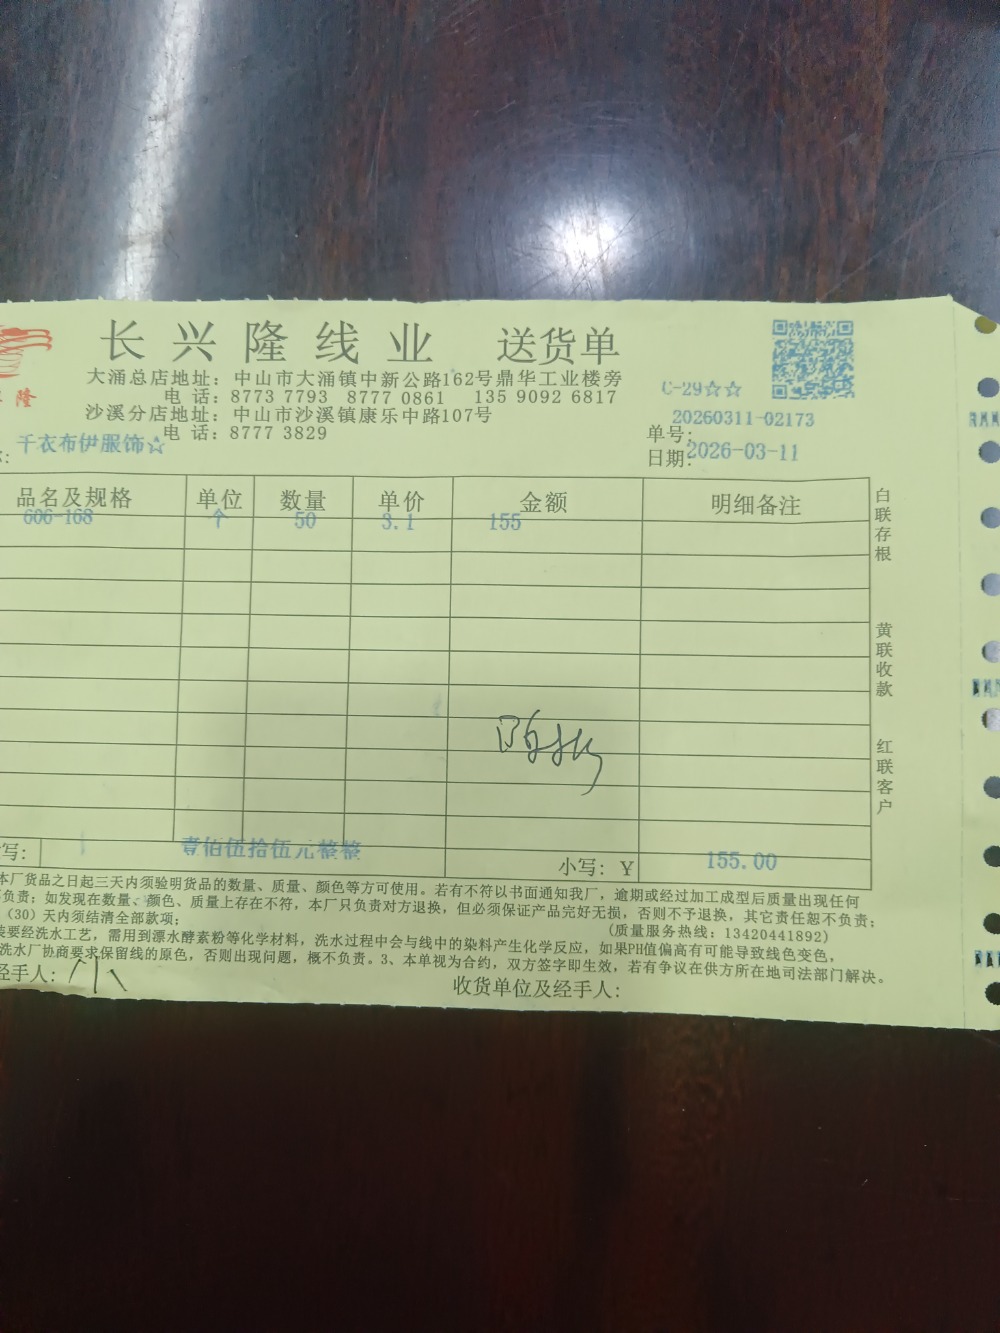 长兴隆线业 送货单
隆
大涌总店地址：中山市大涌镇中新公路162号鼎华工业楼旁
电 话：8773 7793 8777 0861 135 9092 6817
C-29☆☆
沙溪分店地址：中山市沙溪镇康乐中路107号
电 话：8777 3829
单号：20260311-02173
千衣布伊服饰☆
日期：2026-03-11
品名及规格 单位 数量 单价 金额 明细备注
606-168 个 50 3.1 155
白联存根
黄联收款
红联客户
写： 壹佰伍拾伍元整整 小写：Y 155.00
本厂货品之日起三天内须验明货品的数量、质量、颜色等方可使用。若有不符以书面通知我厂，逾期或经过加工成型后质量出现任何
负责；如发现在数量、颜色、质量上存在不符，本厂只负责对方退换，但必须保证产品完好无损，否则不予退换，其它责任恕不负责；
（30）天内须结清全部款项； （质量服务热线：13420441892）
装要经洗水工艺，需用到漂水酵素粉等化学材料，洗水过程中会与线中的染料产生化学反应，如果PH值偏高有可能导致线色变色，
洗水厂协商要求保留线的原色，否则出现问题，概不负责。3、本单视为合约，双方签字即生效，若有争议在供方所在地司法部门解决。
经手人： 收货单位及经手人：